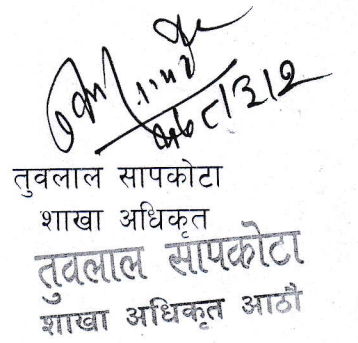 तुवलाल सापकोटा
शाखा अधिकृत
तुवलाल सापकोटा
शाखा अधिकृत आठौ